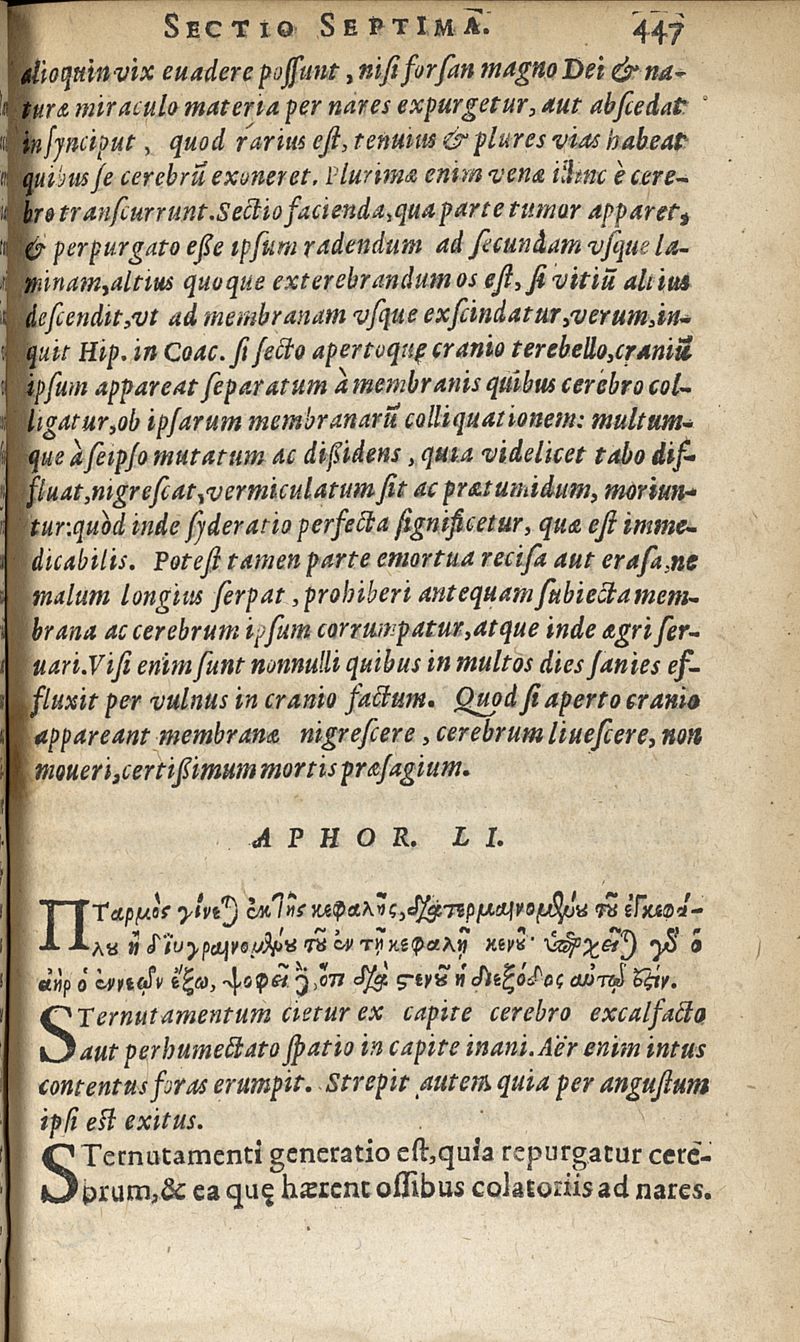 SECTIO SEPTIMA. 447
alioquin vix euadere possunt, nisi forsan magno Dei & na-
turæ miraculo materia per nares expurgetur, aut abscedat
in synciput, quod rarius est, tenuius & plures vias habeat
quibus se cerebrũ exoneret. Plurimæ enim venæ illinc è cere-
bro transcurrunt. Sectio facienda, qua parte tumor apparet,
& perpurgato esse ipsum radendum ad secundam vsque la-
minam, altius quoque exterebrandum os est, si vitiũ altius
descendit, vt ad membranam vsque exscindatur, verum, in-
quit Hip. in Coac. si secto apertoquę cranio terebello, craniũ
ipsum appareat separatum à membranis quibus cerebro col-
ligatur, ob ipsarum membranarũ colliquationem: multum-
que à seipso mutatum ac dissidens, quia videlicet tabo dif-
fluat, nigrescat, vermiculatum sit ac prætumidum, moriun-
tur: quòd inde syderatio perfecta significetur, quæ est imme-
dicabilis. Potest tamen parte emortua recisa aut erasa, ne
malum longius serpat, prohiberi antequam subiecta mem-
brana ac cerebrum ipsum corrumpatur, atque inde ægri ser-
uari. Visi enim sunt nonnulli quibus in multos dies sanies ef-
fluxit per vulnus in cranio factum. Quod si aperto cranio
appareant membranæ nigrescere, cerebrum liuescere, non
moueri, certissimum mortis præsagium.
APHOR. LI.
Πταρμὸς γίνεται ἐκ τῆς κεφαλῆς, διαθερμαινομένου τοῦ ἐγκεφά-
λου ἢ διυγραινομένου τοῦ ἐν τῇ κεφαλῇ κενοῦ· ὑπερχεῖται γὰρ ὁ
ἀὴρ ὁ ἐννεὼν ἔξω, ψοφεῖ δὲ, ὅτι διὰ στενοῦ ἡ διεξόδος αὐτῷ ἐστιν.
STernutamentum cietur ex capite cerebro excalfacto
aut perhumectato spatio in capite inani. Aër enim intus
contentus foras erumpit. Strepit autem quia per angustum
ipsi est exitus.
STernutamenti generatio est, quia repurgatur cerē-
brum, & ea quę hærent ossibus colatoriis ad nares.